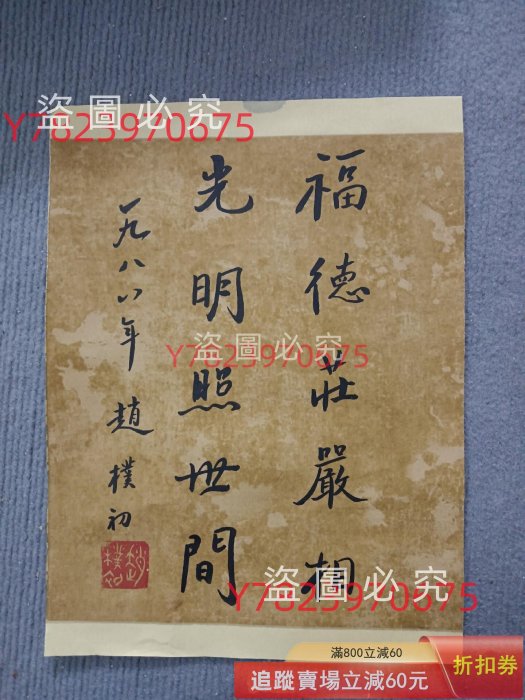 盜圖必究
Y7823970675
福德莊嚴相
光明照世間
一九八八年 趙樸初
趙樸初
盜圖必究
Y7823970675
盜圖必究
Y7823970675
滿800立減60
追蹤賣場立減60元
折扣券